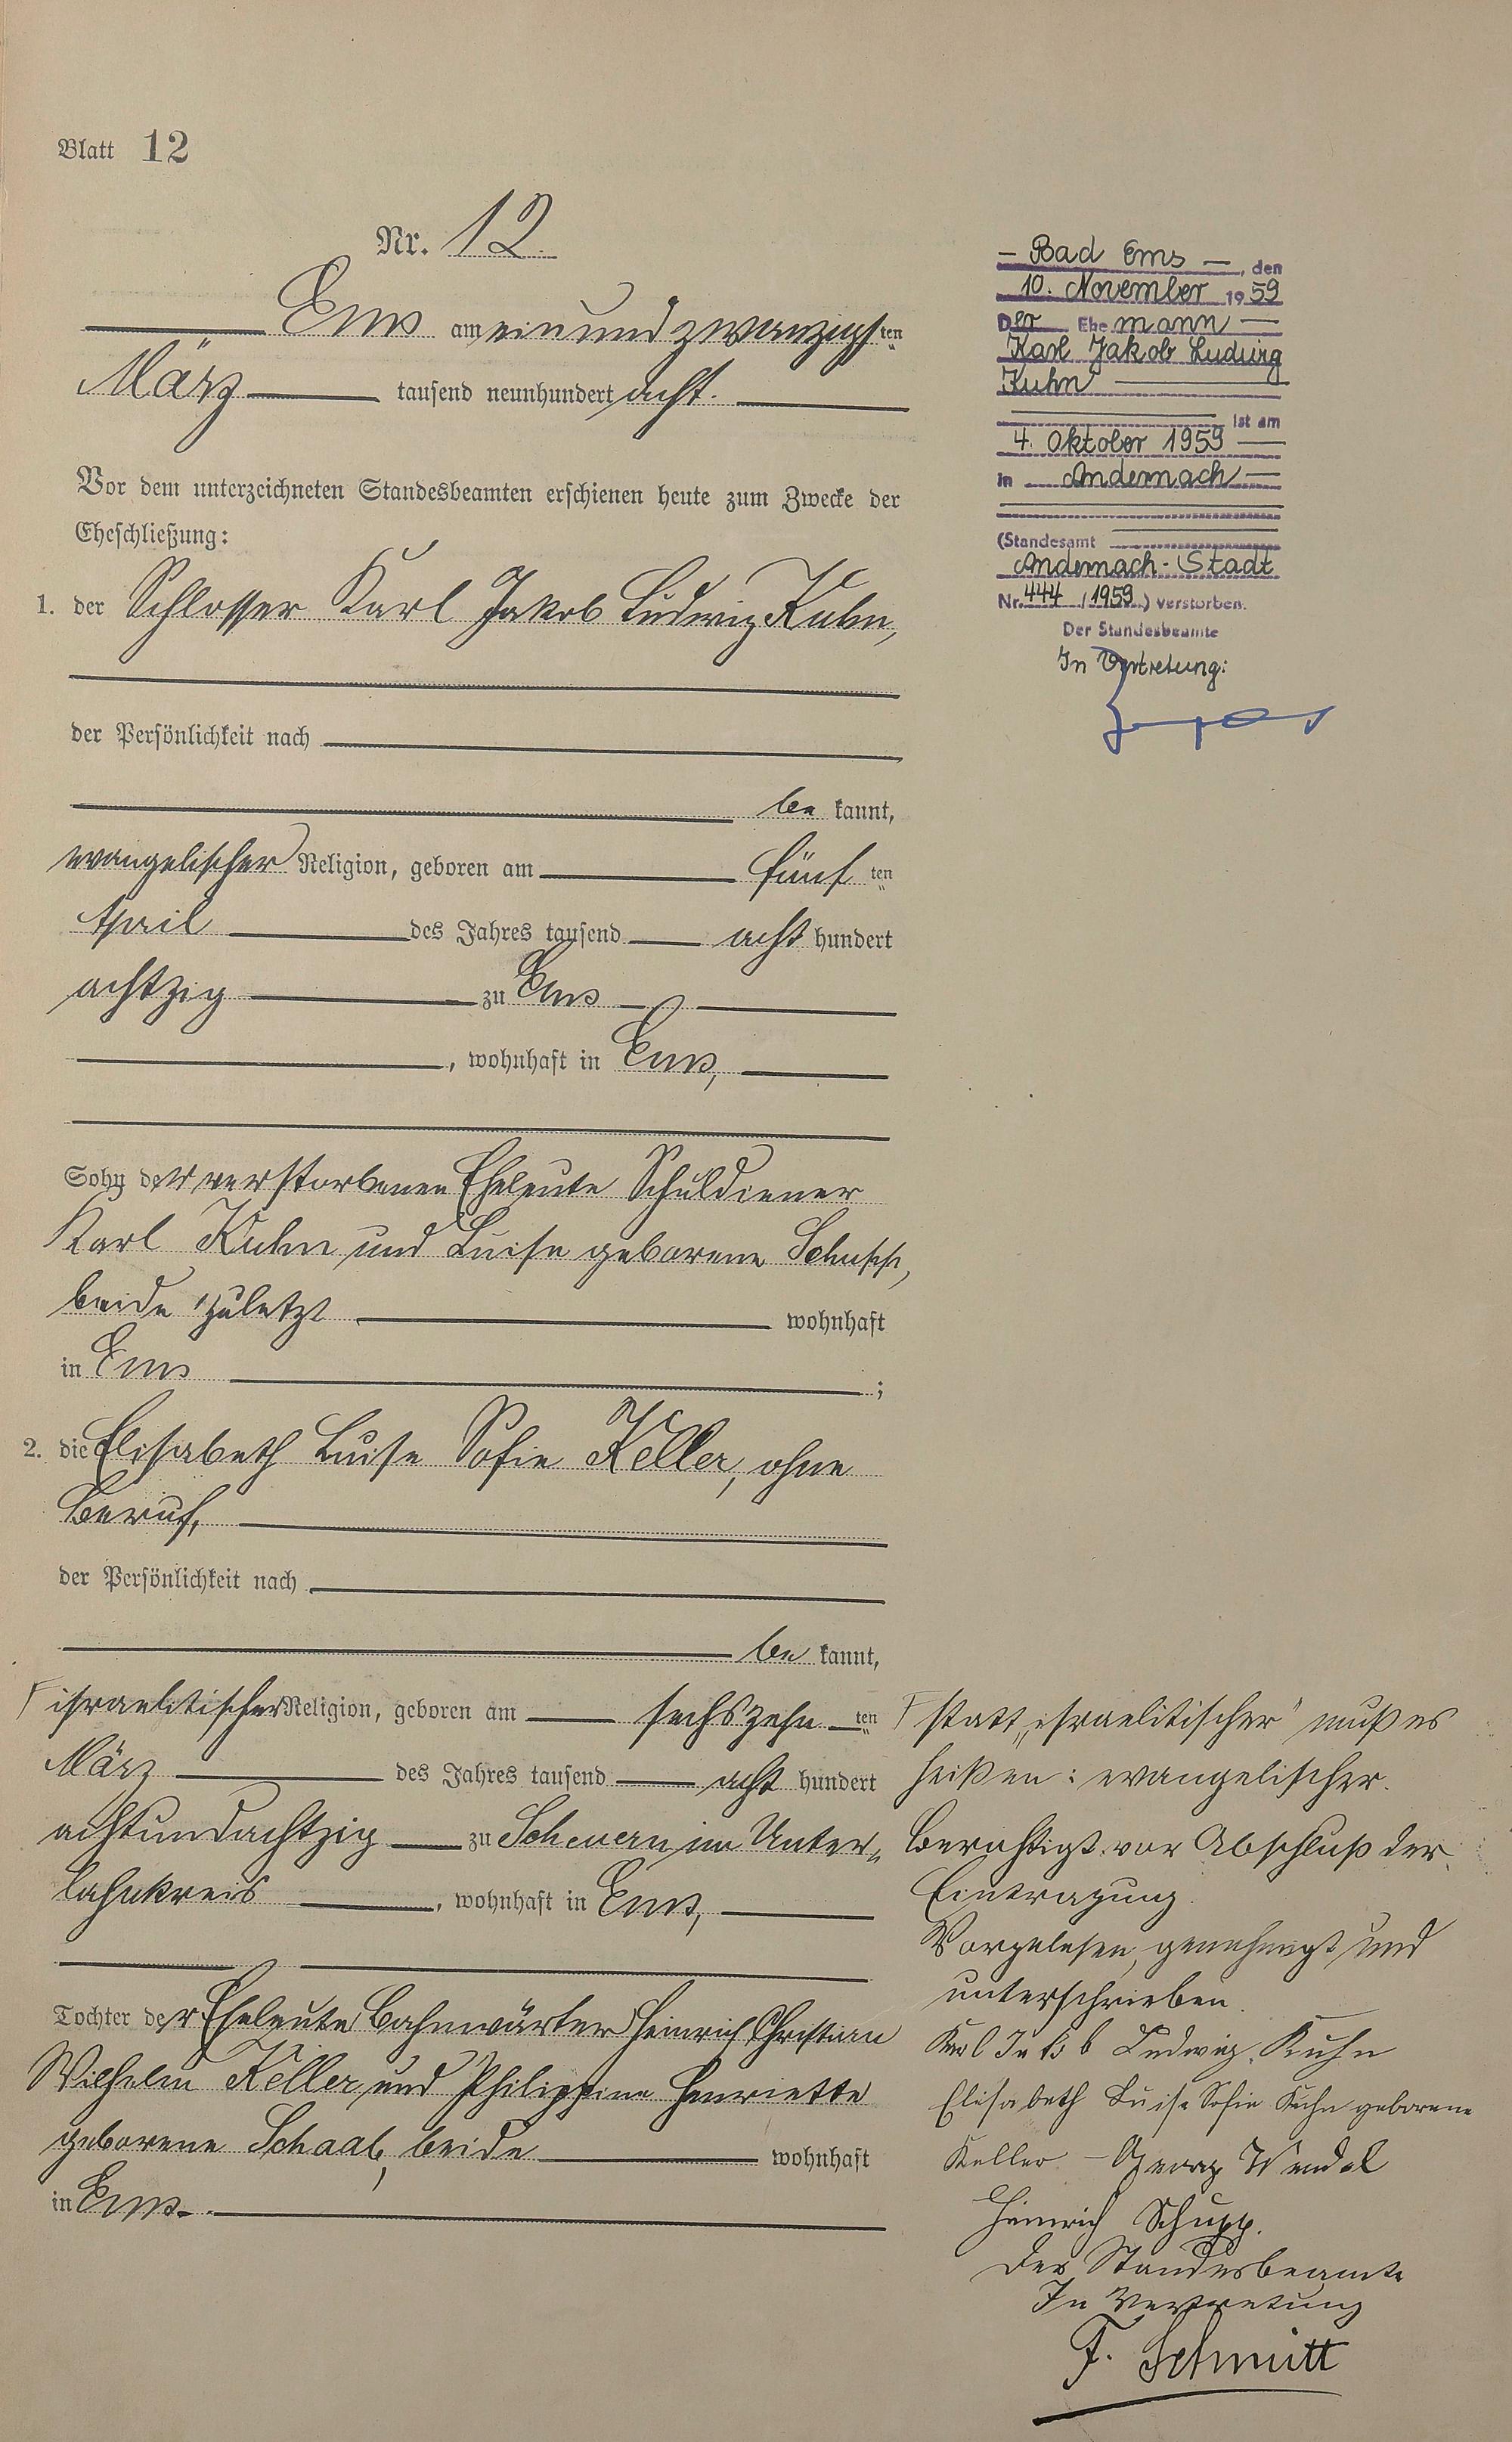 Blatt 12
Nr. 12.
Ems am einundzwanzigsten
März tausend neunhundert acht.
Vor dem unterzeichneten Standesbeamten erschienen heute zum Zwecke der
Eheschließung:
1. der Schlosser Karl Jakob Ludwig Kuhn,
der Persönlichkeit nach
be kannt,
evangelischer Religion, geboren am fünf ten
April des Jahres tausend acht hundert
achtzig zu Ems
, wohnhaft in Ems,
Sohn der verstorbenen Eheleute Schuldiener
Karl Kuhn und Luise geborene Schupp,
beide zuletzt wohnhaft
in Ems ;
2. die Elisabeth Luise Sofie Keller, ohne
Beruf,
der Persönlichkeit nach
be kannt,
israelitischer Religion, geboren am sechszehn ten
März des Jahres tausend acht hundert
achtundachtzig zu Scheuern im Unter„
lahnkreis , wohnhaft in Ems,
Tochter der Eheleute Bahnwärter Heinrich Christian
Wilhelm Keller und Philippine Henriette
geborene Schaab, beide wohnhaft
in Ems.
– Bad Ems –, den
10. November 1959
Der Ehemann –
Karl Jakob Ludwig
Kuhn
ist am
4. Oktober 1959
in Andernach
(Standesamt
Andernach-Stadt
Nr. 444 / 1959) verstorben.
Der Standesbeamte
In Vertretung:
statt „israelitischer" muß es
heißen: evangelischer.
Berichtigt vor Abschluß der
Eintragung.
Vorgelesen, genehmigt und
unterschrieben.
Karl Jakob Ludwig Kuhn
Elisabeth Luise Sofie Kuhn geborene
Keller – Georg Wendel
Heinrich Schupp.
Der Standesbeamte
In Vertretung
F. Schmitt